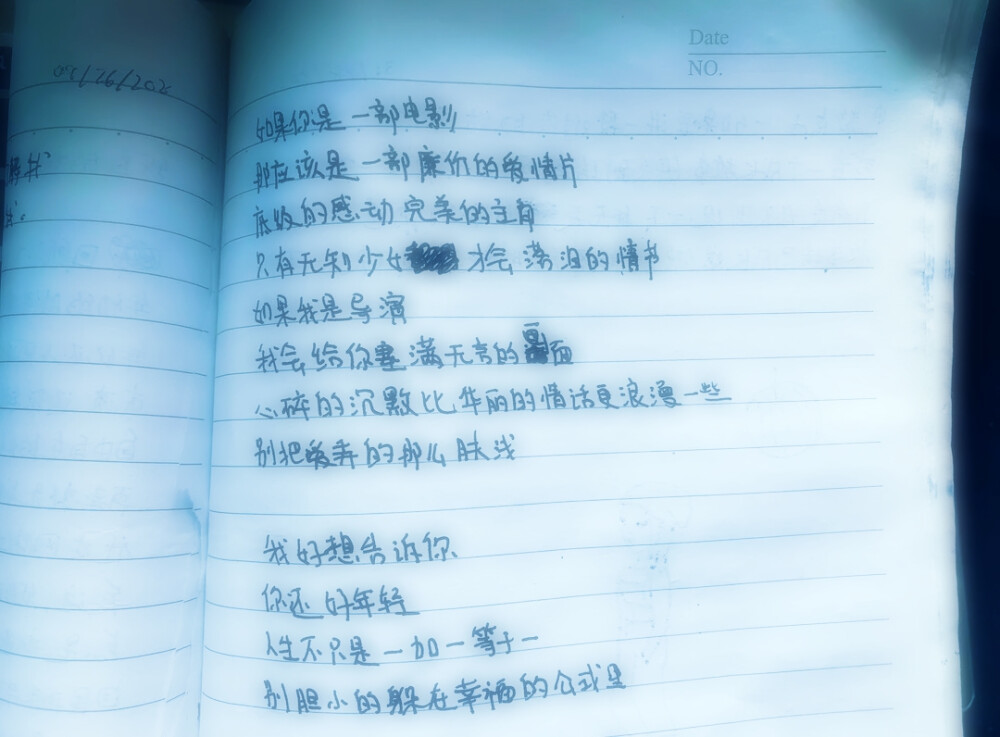 Date
NO.
09/26/202
如果你是一部电影
那应该是一部廉价的爱情片
底级的感动 完美的主角
只有无知少女 才会落泪的情书
如果我是导演
我会给你塞满无言的画面
心碎的沉默比华丽的情话更浪漫一些
别把爱弄的那么肤浅
我好想告诉你
你还好年轻
人生不只是一加一等于一
别胆小的躲在幸福的公式里